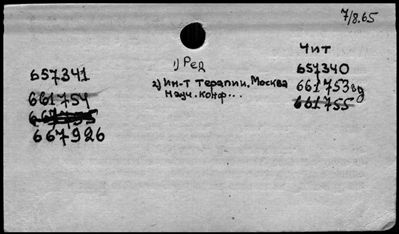 7/8.65
Чит
1) Ред
657341
657340
2) Ин-т терапии. Москва
Науч. конф...
661753
661754
661755
667926